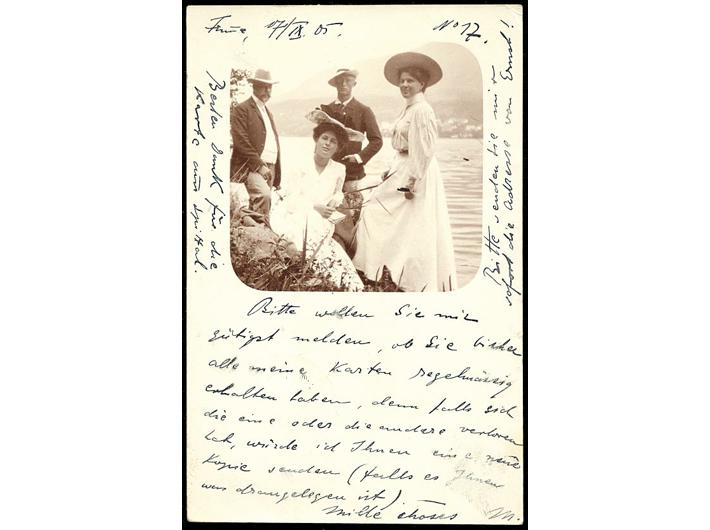 07/IX. 05.
No 17.
Besten Dank für die
Karte aus Spital.
Bitte senden Sie mir
sofort die Adresse von Ernst!
Bitte wollen Sie mir
gütigst melden, ob Sie bisher
alle meine Karten regelmässig
erhalten haben, denn falls sich
die eine oder die andere verloren
hat, würde ich Ihnen eine neue
Kopie senden (falls es Ihnen
was drangelegen ist).
Mille choses M.